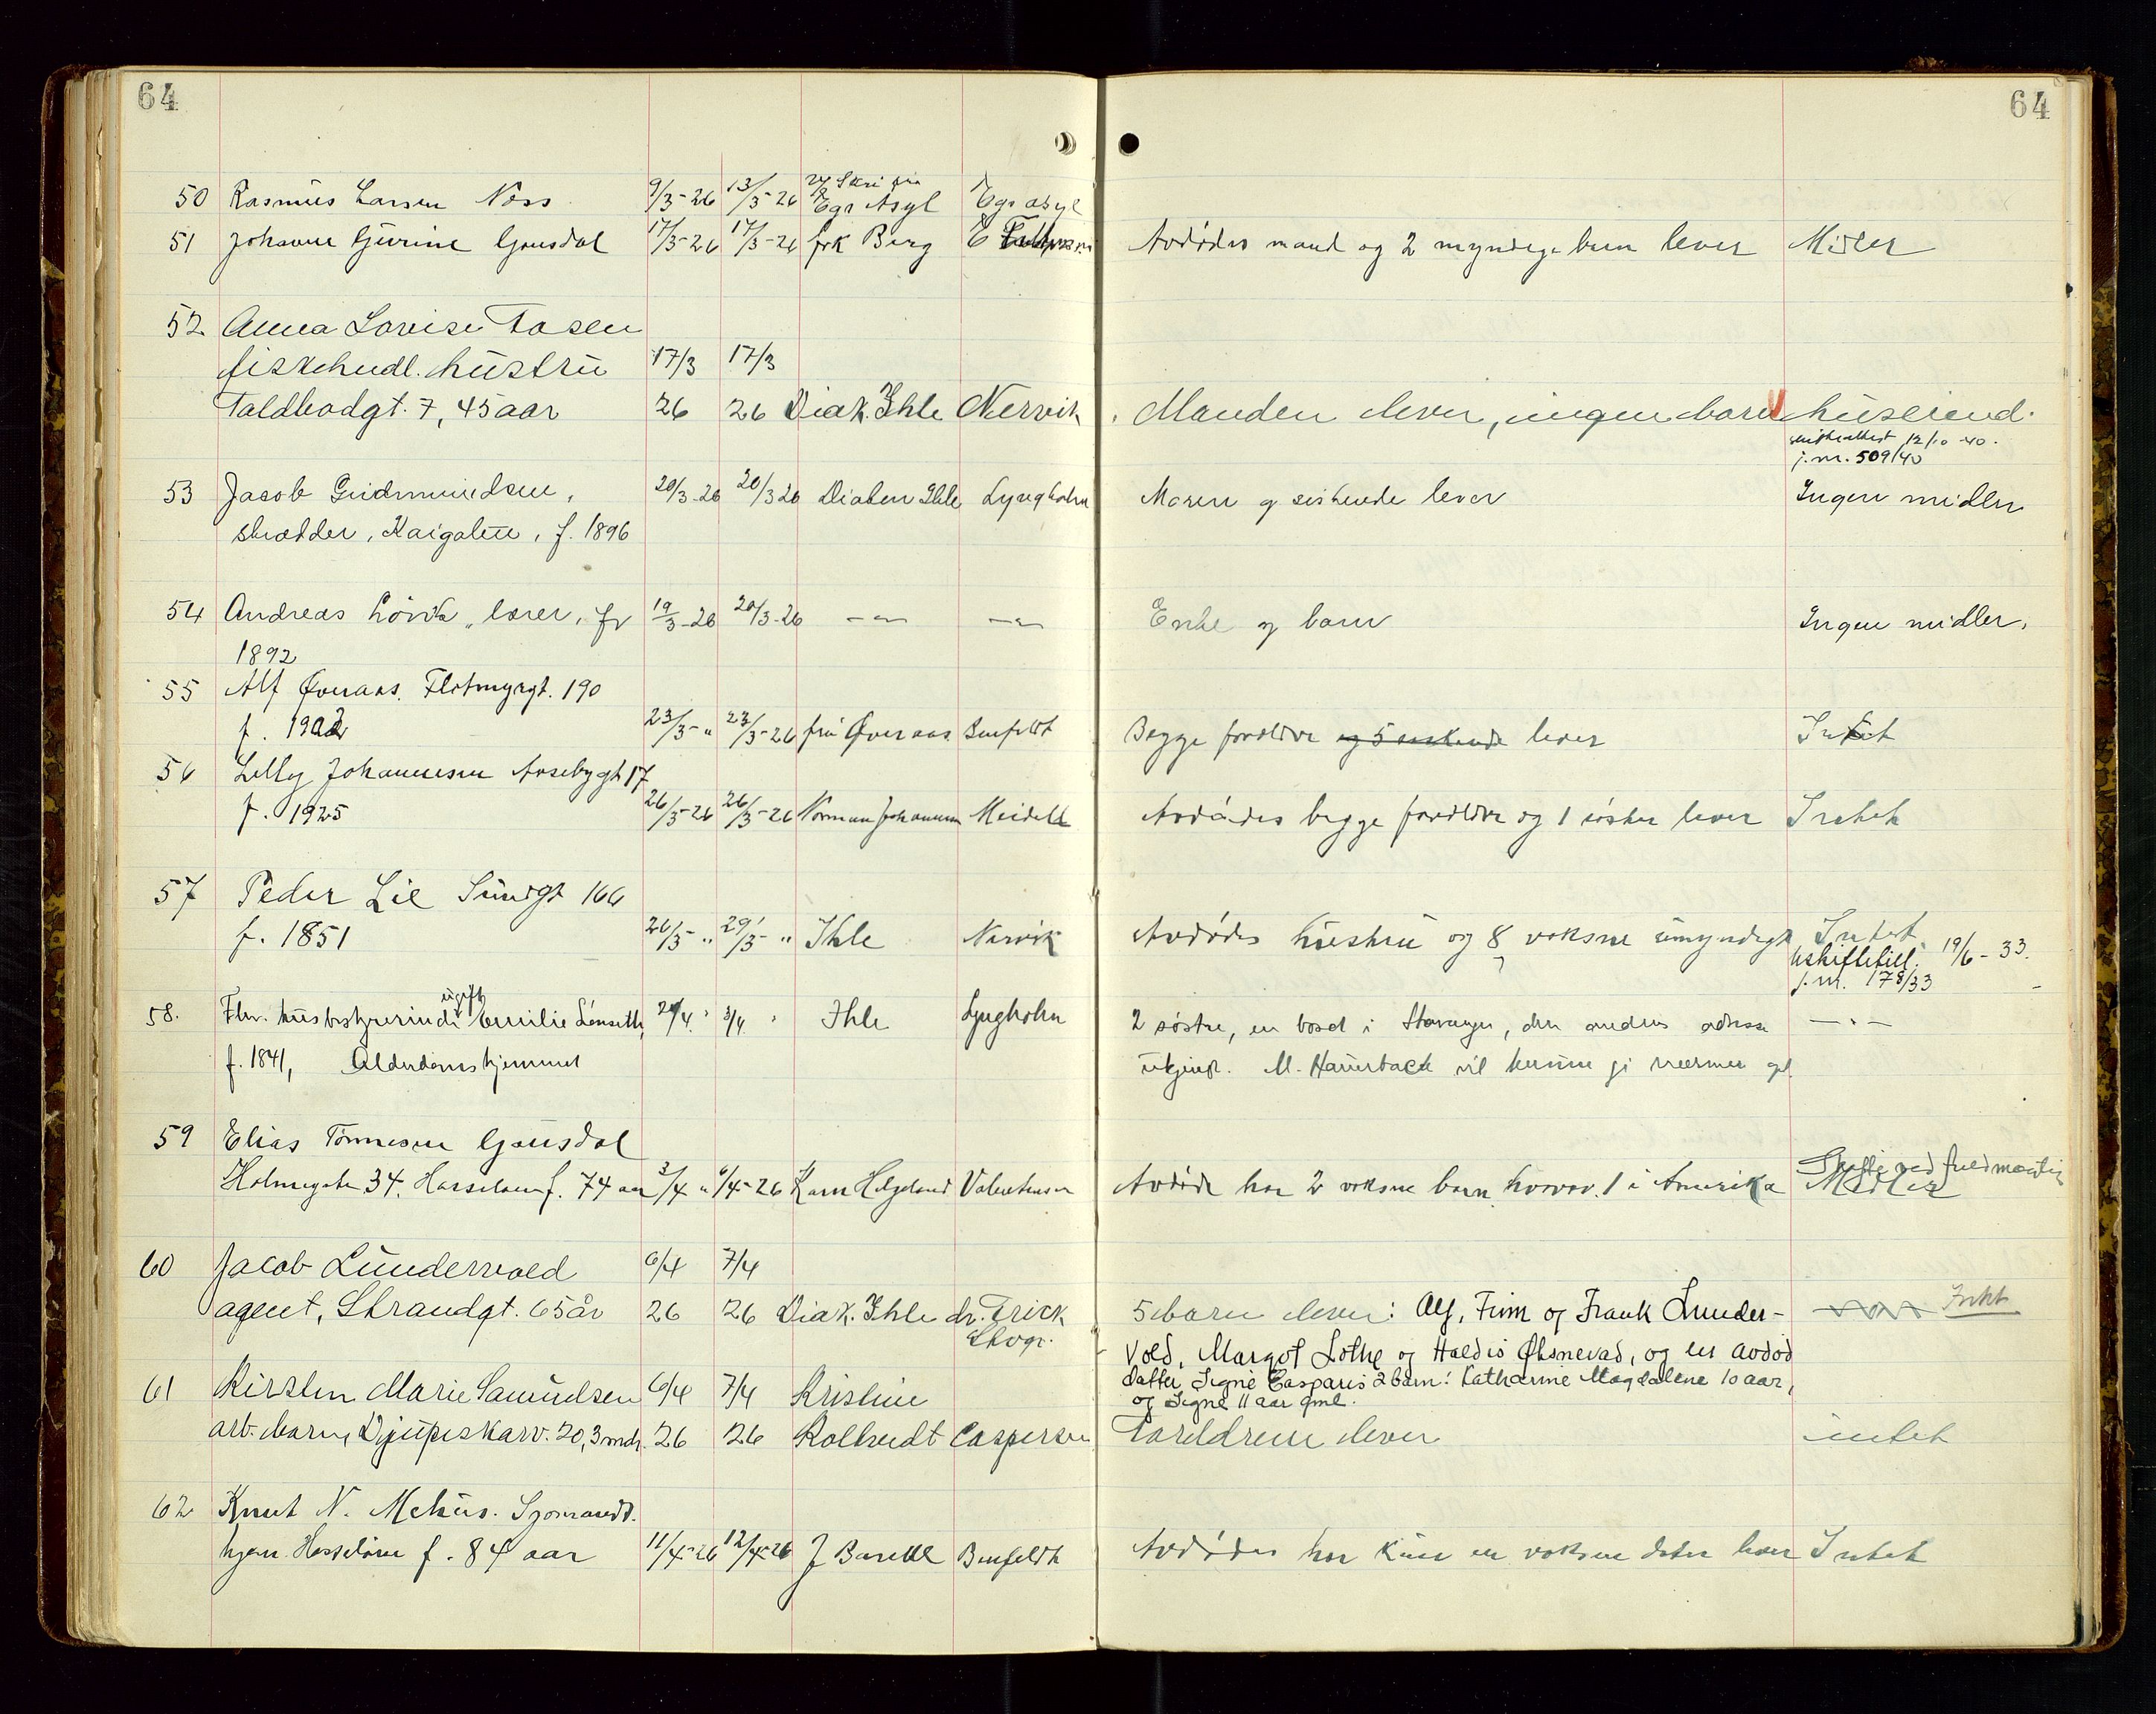 64
64
50 Rasmus Larsen Næss 9/3-26 13/3-26 Skri fra Egs Asyl Egs asyl
51 Johanne Gurine Gausdal 17/3-26 17/3-26 frk Berg E Avdødes mand og 2 myndige barn lever Midler
52 Anna Lovise Tasen
fiskehndl. hustru 17/3 17/3
Toldbodgt. 7, 45 aar 26 26 Diak. Ihle Nervik Manden lever, ingen barn huseiend.
12/10-40.
j.nr. 509/40
53 Jacob Gudmundsen, 20/3-26 20/3 26 Diakon Ihle Lyngholm Moren og søskende lever Ingen midler
skrædder, Kaigaten, f. 1896
54 Andreas Løvik, lærer, f. 19/3-26 20/3-26 -"- -"- Enke og barn Ingen midler.
1892
55 Alf Øveraas. Flotmyrgt. 190
f. 1902 23/3-" 23/3-26 fru Øveraas Benfeldt Begge forældre og 5 søskende lever Intet
56 Lilly Johannesen Aasebygt 17
f. 1925 26/3-26 26/3-26 Norman Johannesen Meidell Avdødes begge forældre og 1 søster lever Intet
57 Peder Lie Sundgt 166
f. 1851 26/3-" 29/3-" Ihle Nervik Avdødes hustru og 8 voksne umyndige Intet
Uskiftetill. 19/6-33.
j.nr. 178/33
58. Fhv. husbestyrerinde ugift Emilie Lønseth, 29/4 " 3/4 " Ihle Lyngholm 2 søstre, en bosat i Stavanger, den andens adresse -"-
f. 1841, Alderdomshjemmet ukjendt. M. Hauerback vil kunne gi nærmer opl.
59 Elias Tønnesen Gausdal
Holmegaten 34. Hasseløen f. 74 aar 3/4 " 6/4-26 Karn Helgeland Valentinsen Avdøde har 2 voksne barn hvorav 1 i Amerika Midler
Skifte ved fuldmægtig
60 Jacob Lundervold 6/4 7/4
agent, Strandgt. 65 år 26 26 Diak. Ihle dr. Frick 5 barn lever: Alf, Finn og Frank Lunder- Intet
Skogr. vold, Margot Lothe og Haldis Øksnevad, og en avdød
datter Signe Casparis 2 barn: Katharine Magdalene 10 aar,
og Signe 11 aar gml.
61 Kirsten Marie Samuelsen 6/4 7/4 Kristine
arb. barn, Djupaskarv. 20, 3 mdr. 26 26 Rolfvedt Caspersen Forældrene lever intet
62 Knut N. Mehus. Sjømands.
hjem. Hasseløen f. 84 aar 11/4-26 12/4-26 J Barell Benfeldt Avdødes har kun en voksen dater lever Intet